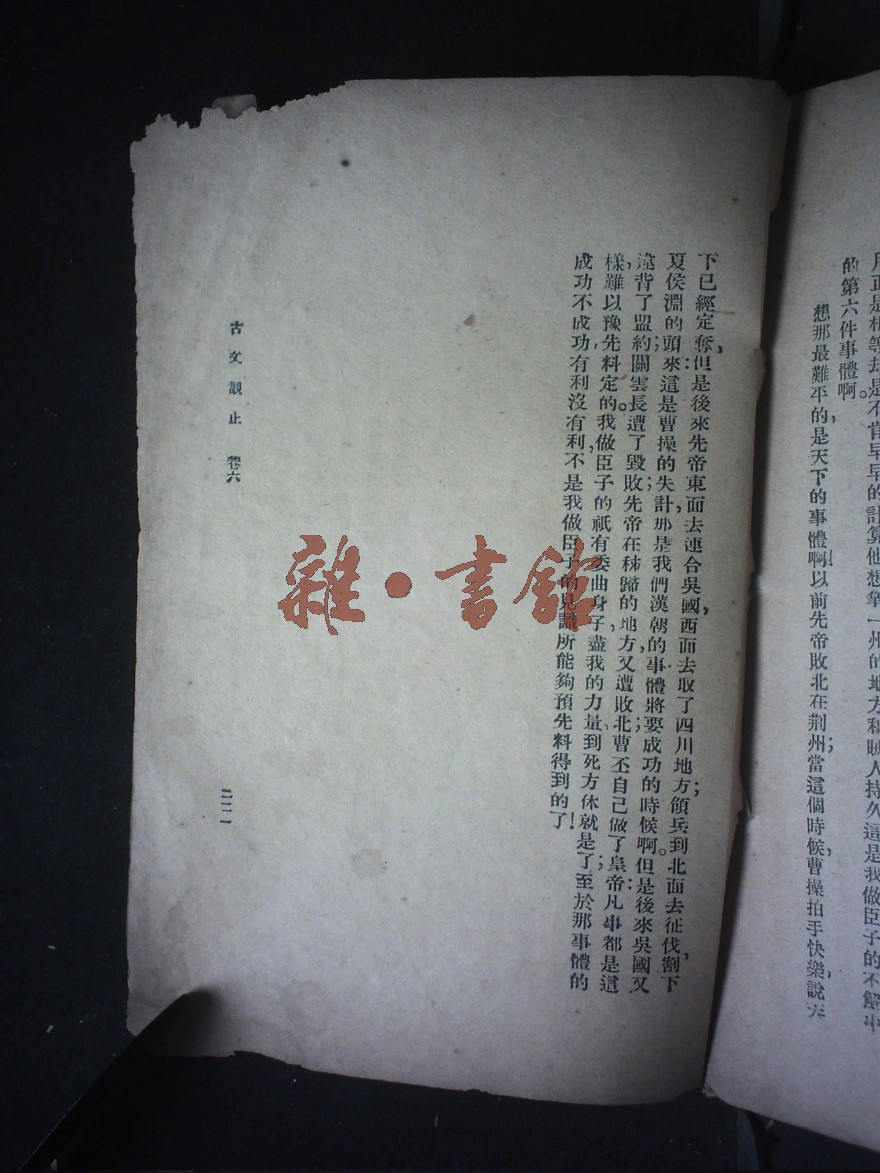 月正是相等却是不肯早早的計算他想拏一州的地方和賊人持久這是我做臣子的不解
的第六件事體啊。
想那最難平的，是天下的事體啊！以前先帝敗北在荆州；當這個時候，曹操拍手快樂，說天
下已經定奪，但是：後來先帝東面去連合吳國，西面去取了四川地方；領兵到北面去征伐，割下
夏侯淵的頭來；這是曹操的失計，那是我們漢朝的事體將要成功的時候啊。但是：後來吳國又
違背了盟約；關雲長遭了毀敗；先帝在秭歸的地方，又遭敗北；曹丕自己做了皇帝，凡事都是這
樣，難以豫先料定的。我做臣子的，祇有委曲身子，盡我的力量，到死方休就是了；至於那事體的
成功不成功，有利沒有利，不是我做臣子的見識，所能夠預先料得到的了！
古文觀止 卷六
雜·書館